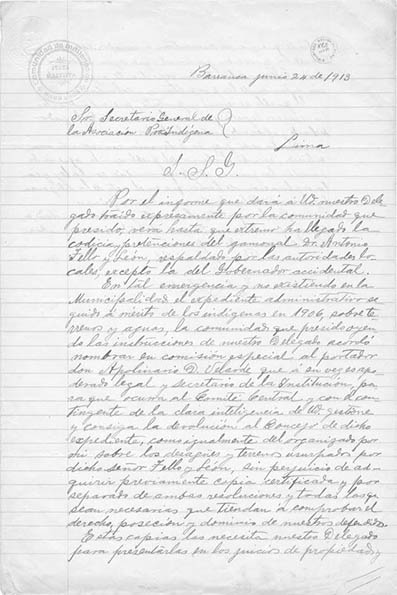 Barranca junio 24 de 1913
Sr. Secretario General de
la Asociación Pro-Indígena
Lima
S. S. G.
Por el informe que dará á Ud. nuestro Dele
gado traido expresamente por la comunidad que
presido, verá hasta que extremo ha llegado la
codicia, pretenciones del gamonal Dr. Antonio
Fello y León, respaldado por las autoridades lo-
cales, excepto la del Gobernador accidental.
En tal emergencia y no existiendo en la
Municipalidad el expediente administrativo se
guido á mérito de los indígenas en 1906, sobre te
rrenos y aguas, la comunidad que presido oyen
do las instrucciones de nuestro Delegado acordó
nombrar en comisión especial al portador
don Apolinario D. Velarde que á su vez es apo-
derado legal y secretario de la Institución, pa
ra que ocurra al Comité Central y con el con-
tingente de la clara inteligencia de Ud. gestione
y consiga la devolución al Concejo de dicho
expediente, como igualmente del organizado por
mí sobre los desagües y terrenos usurpados por
dicho señor Fello y León, sin perjuicio de ad-
quirir previamente copia certificada y por
separado de ambas resoluciones y todas las q.
sean necesarias que tiendan á comprobar el
derecho, posesión y dominio de nuestros defendidos.
Estas copias las necesita nuestro Delegado
para presentarlas en los juicios de propiedad, y